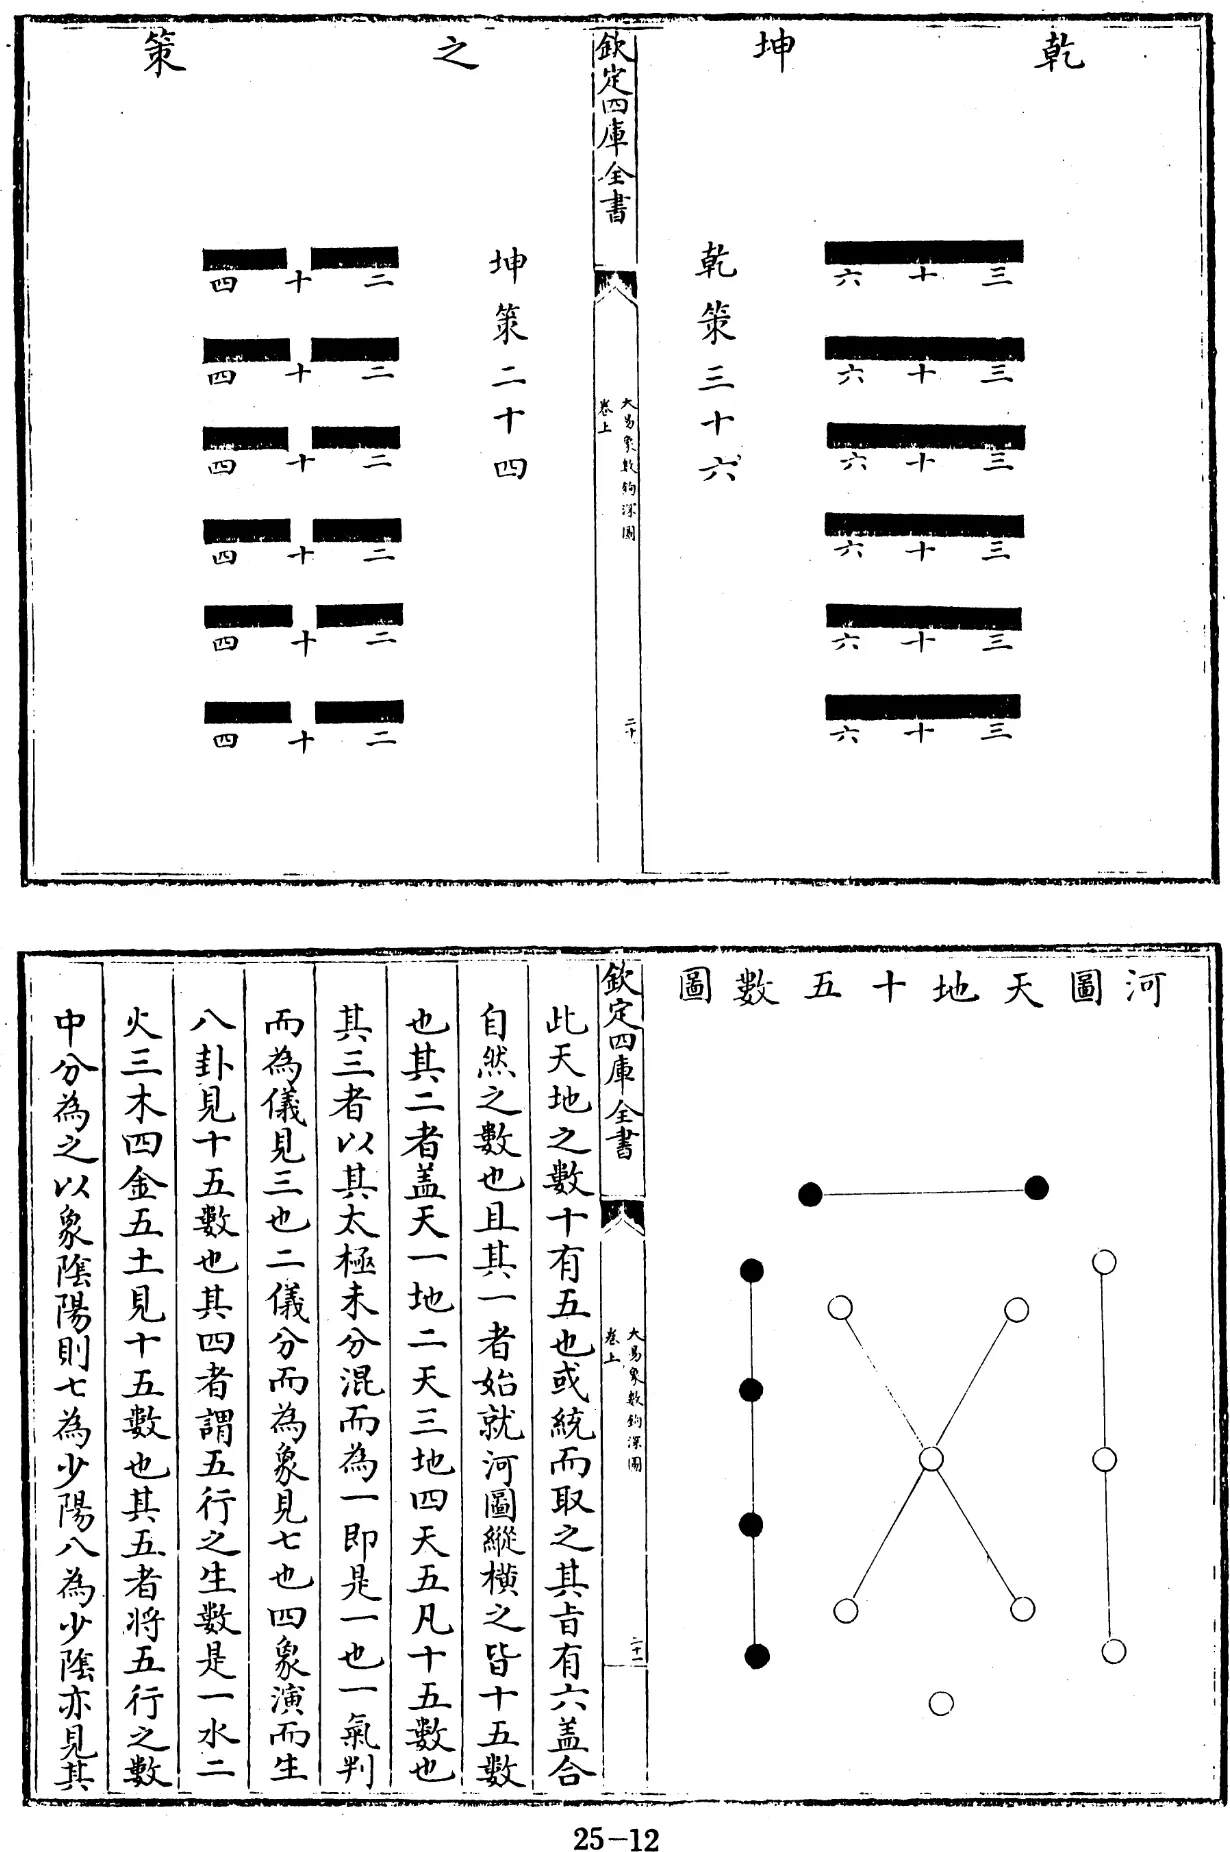 乾坤之策
三十六
三十六
三十六
三十六
三十六
三十六
乾策三十六
欽定四庫全書
大易象數鈎深圖
卷上
二十
坤策二十四
二十四
二十四
二十四
二十四
二十四
二十四
河圖天地十五數圖
欽定四庫全書
大易象數鈎深圖
卷上
二十一
此天地之數十有五也或統而取之其旨有六盖合
自然之數也且其一者始就河圖縱橫之皆十五數
也其二者盖天一地二天三地四天五凡十五數也
其三者以其太極未分混而為一即是一也一氣判
而為儀見三也二儀分而為象見七也四象演而生
八卦見十五數也其四者謂五行之生數是一水二
火三木四金五土見十五數也其五者將五行之數
中分為之以象陰陽則七為少陽八為少陰亦見其
25-12